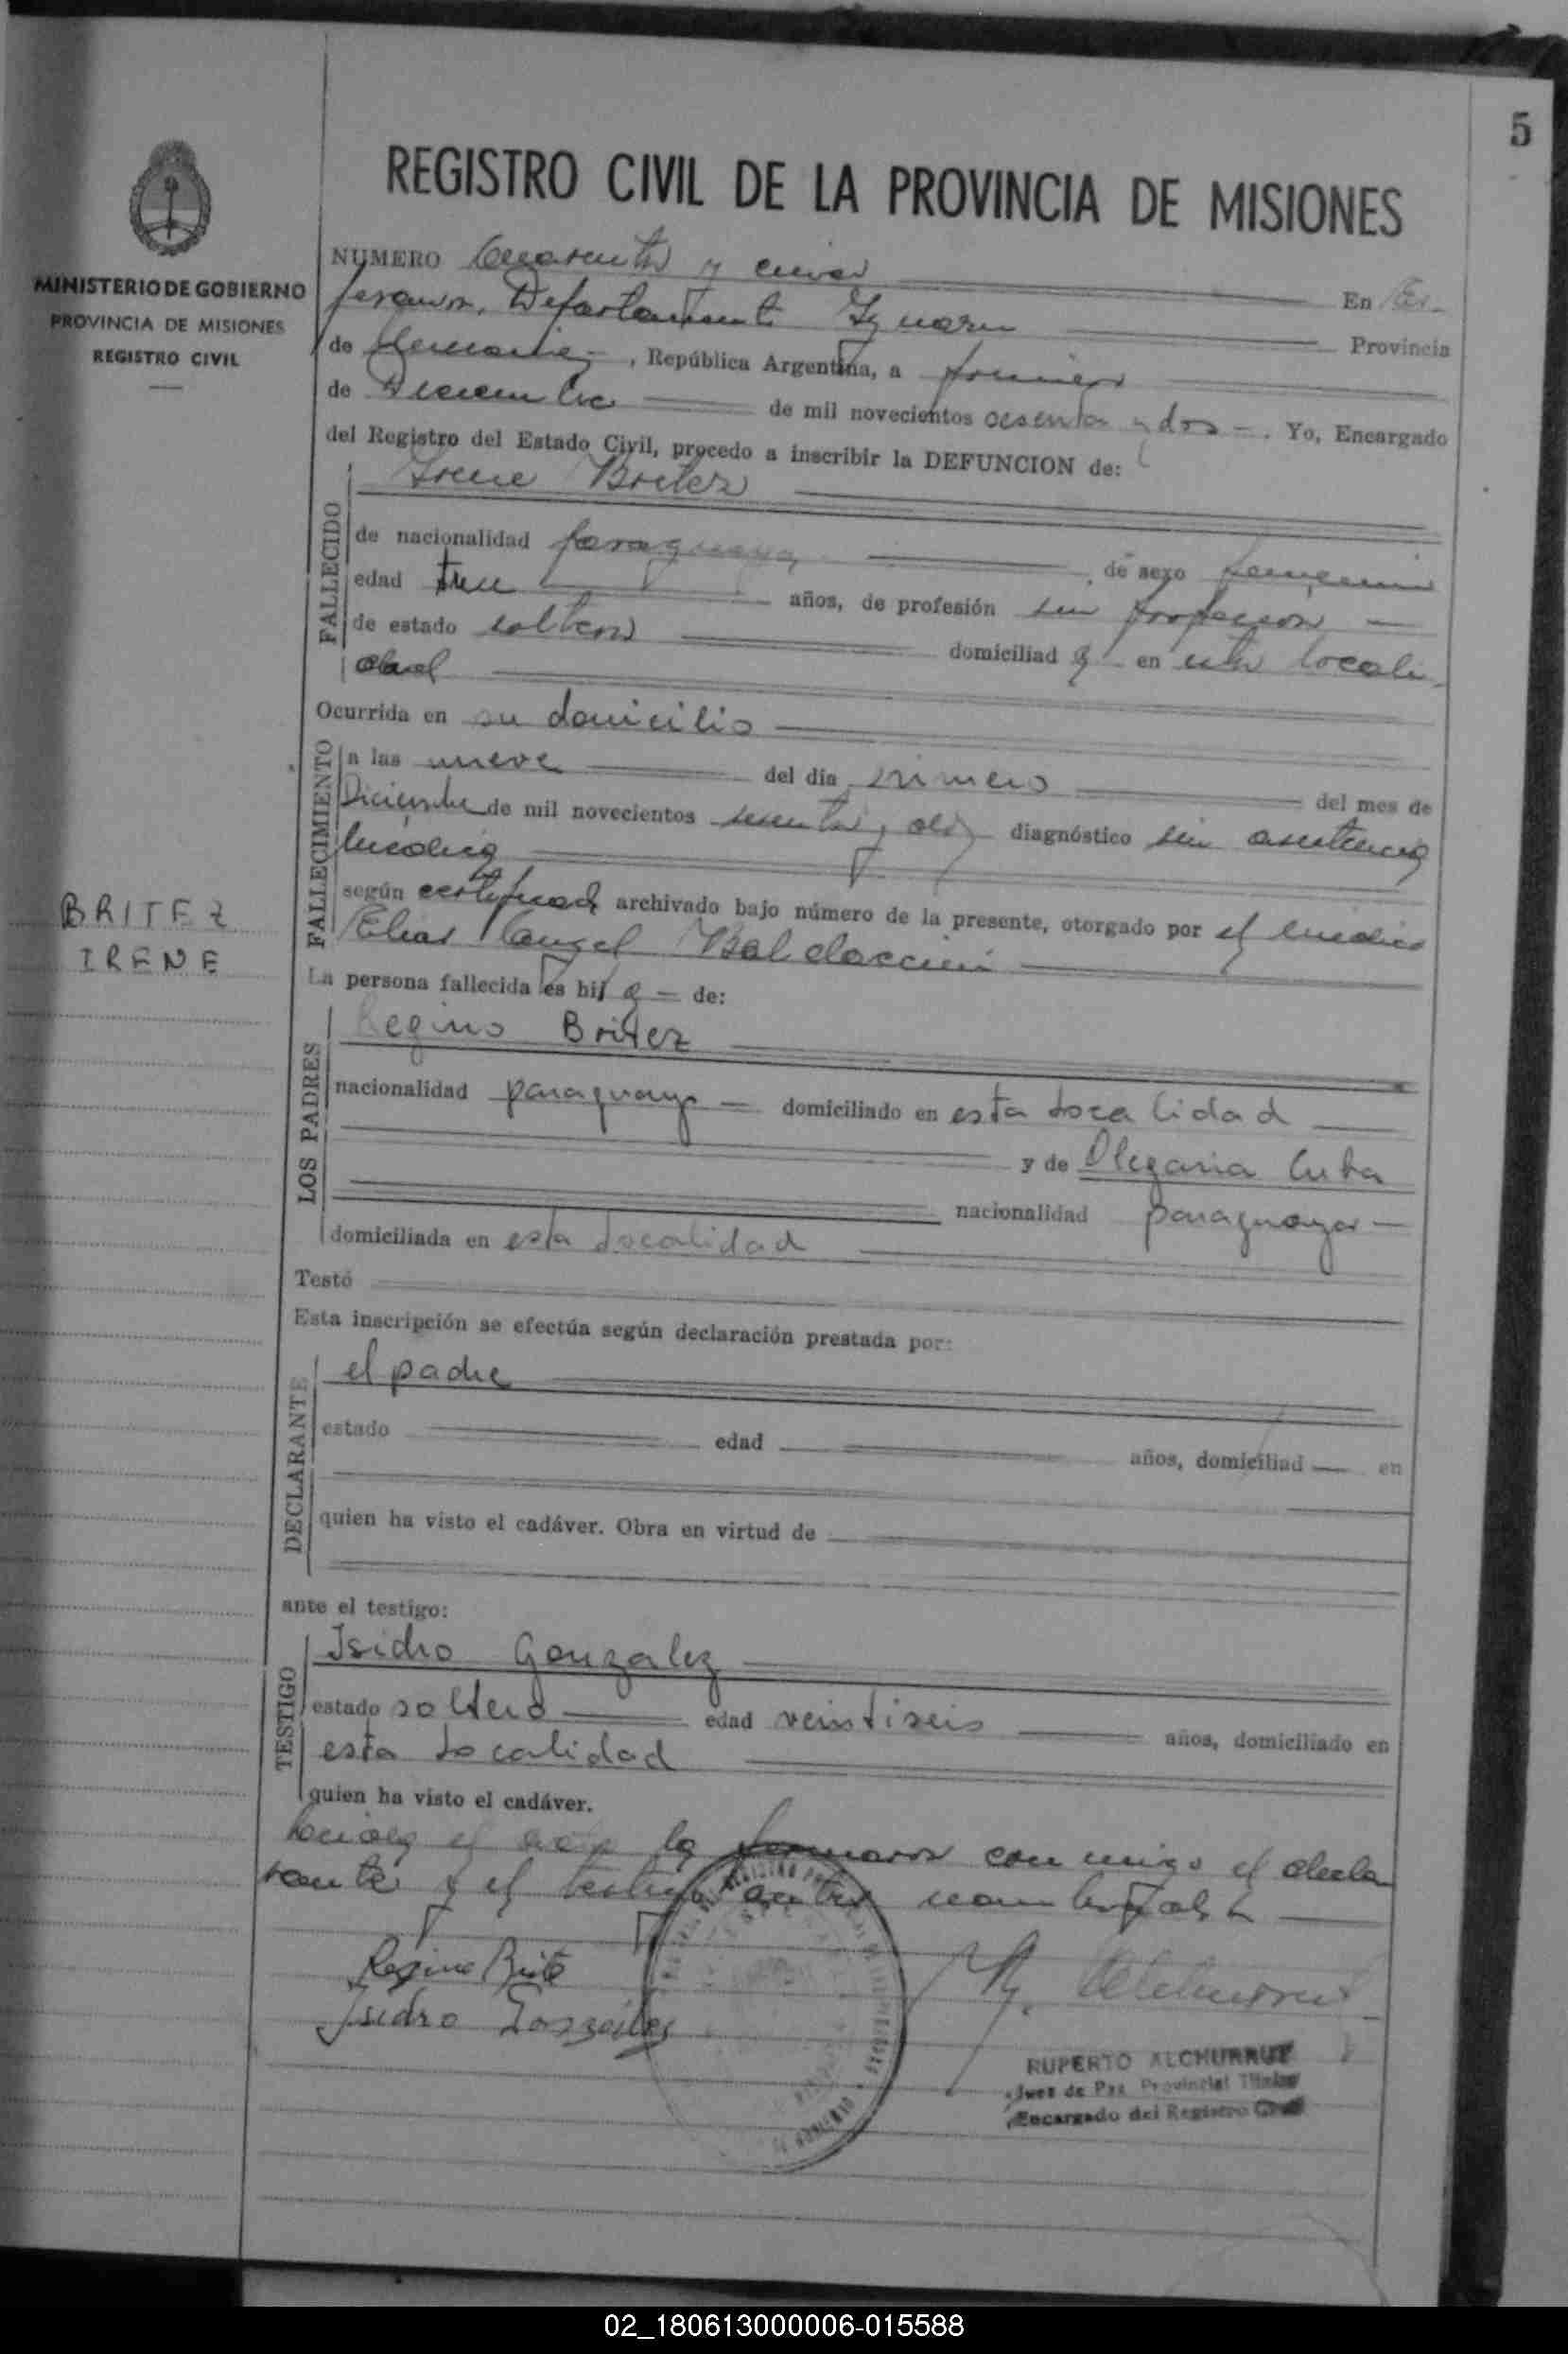 5
REGISTRO CIVIL DE LA PROVINCIA DE MISIONES
MINISTERIO DE GOBIERNO
PROVINCIA DE MISIONES
REGISTRO CIVIL
NUMERO Cuarenta y cinco En Es-
peranza, Departamento Iguazu Provincia
de Misiones, República Argentina, a primero
de Diciembre de mil novecientos sesenta y dos. Yo, Encargado
del Registro del Estado Civil, procedo a inscribir la DEFUNCION de:
Irene Britez
FALLECIDO
de nacionalidad paraguaya, de sexo femenino
edad tres años, de profesión sin profesion
de estado soltera domiciliad a en esta locali
dad
Ocurrida en su domicilio
FALLECIMIENTO
a las nueve del día primero del mes de
Diciembre de mil novecientos sesenta y dos diagnóstico sin asistencia
médica
según certificado archivado bajo número de la presente, otorgado por el médico
Elias Angel
BRITEZ
IRENE
La persona fallecida es hij a de:
Regino Britez
LOS PADRES
nacionalidad paraguayo domiciliado en esta localidad
y de Olegaria Cuba
nacionalidad paraguaya
domiciliada en esta localidad
Testó
Esta inscripción se efectúa según declaración prestada por:
el padre
DECLARANTE
estado edad años, domiciliad en
quien ha visto el cadáver. Obra en virtud de
ante el testigo:
Isidro Gonzalez
TESTIGO
estado soltero edad veintiseis años, domiciliado en
esta localidad
quien ha visto el cadáver.
la firmaron con migo el decla
rante y el testigo antes nombrado
Regino Brite
Isidro Gonzalez
RUPERTO ALCHURRUT
Juez de Paz Provincial Titular
Encargado del Registro Civil
02_180613000006-015588